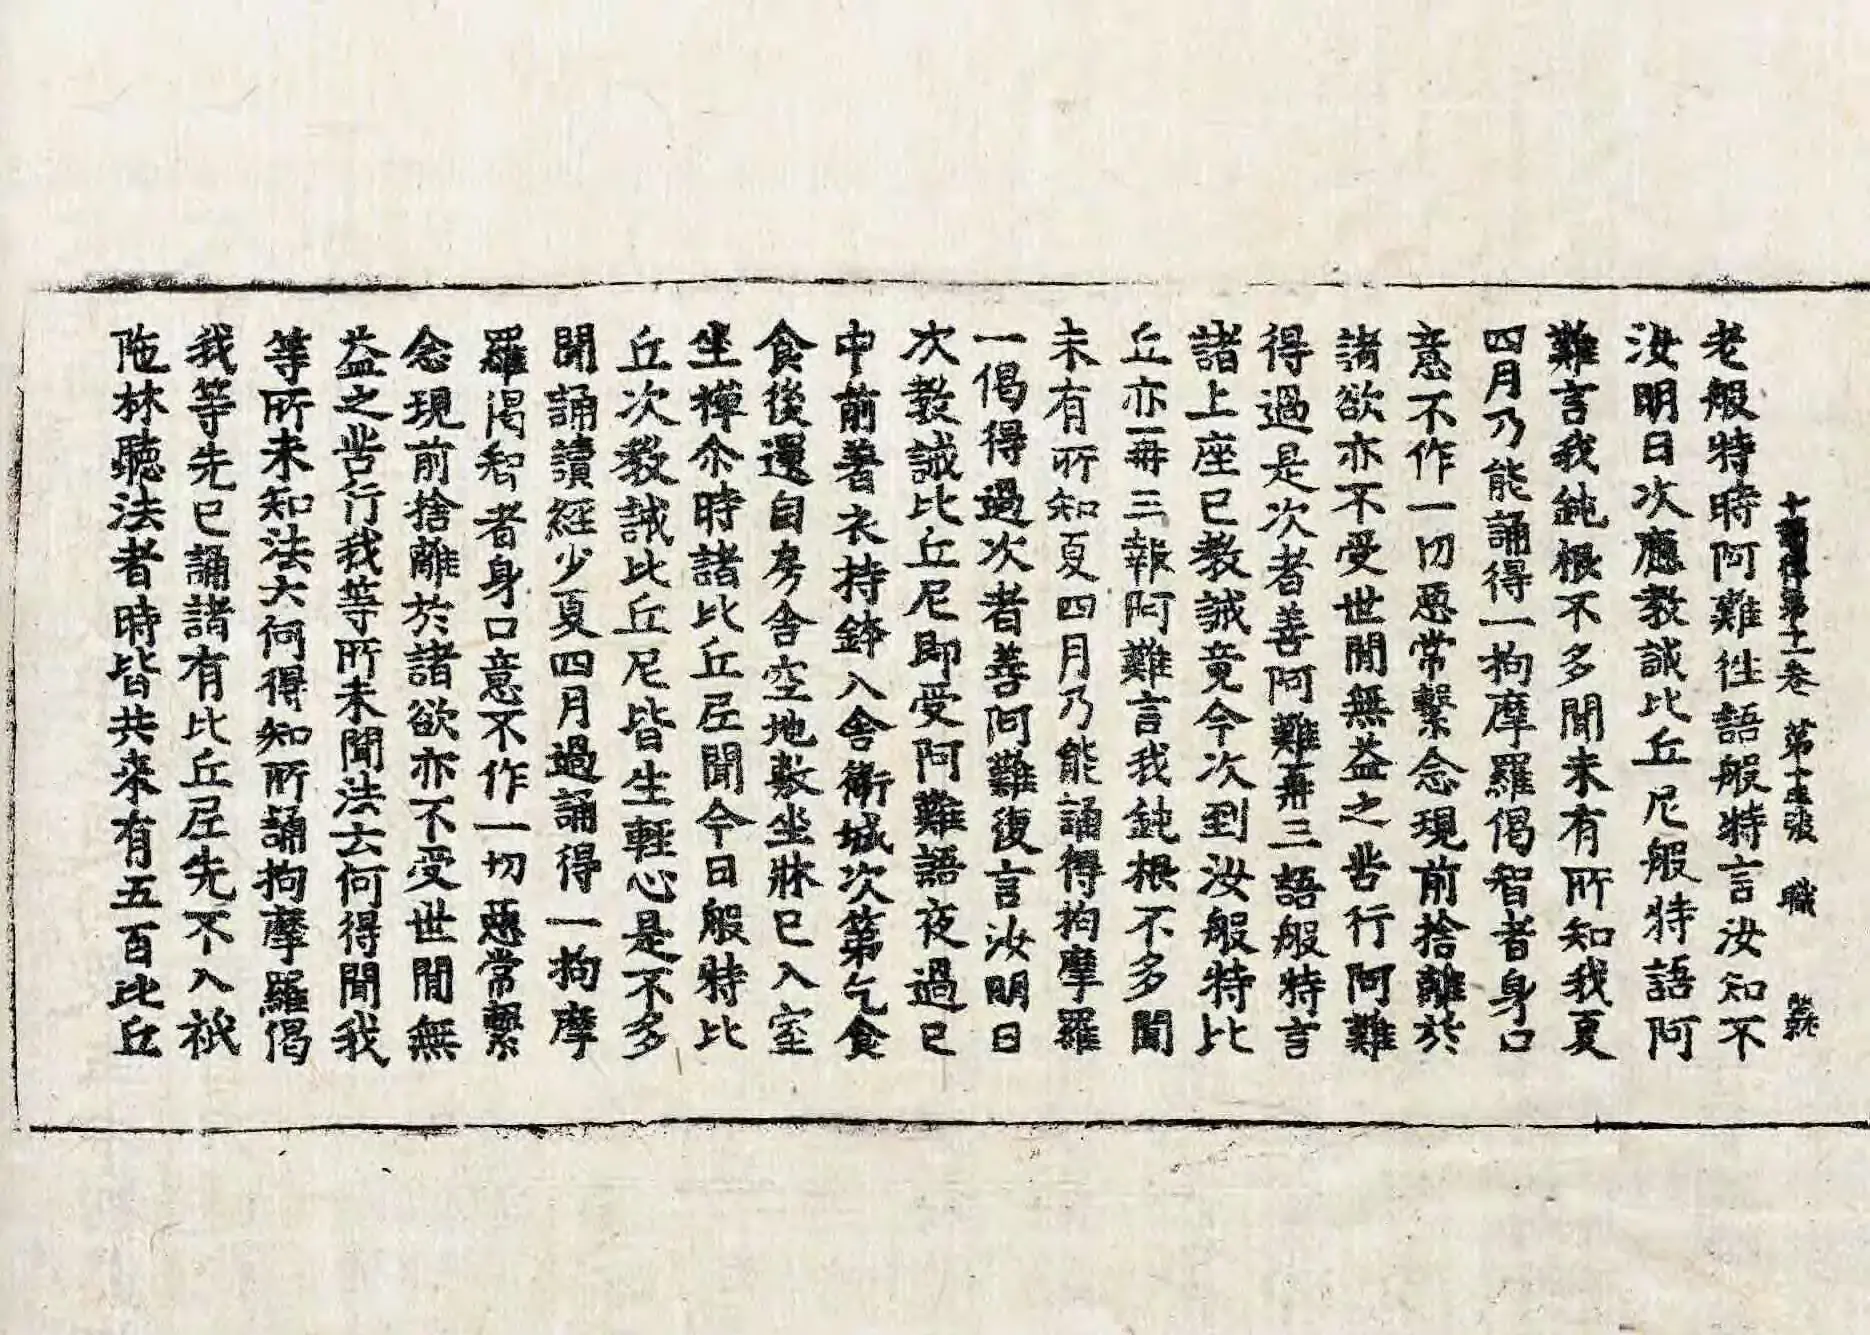 十誦律第十一卷 第十五張 職
老般特時阿難往語般特言汝知不
汝明日次應教誡比丘尼般特語阿
難言我鈍根不多聞未有所知我夏
四月乃能誦得一拘摩羅偈智者身口
意不作一切惡常繫念現前捨離於
諸欲亦不受世間無益之苦行阿難
得過是次者善阿難再三語般特言
諸上座已教誡竟今次到汝般特比
丘亦再三報阿難言我鈍根不多聞
未有所知夏四月乃能誦得拘摩羅
一偈得過次者善阿難復言汝明日
次教誡比丘尼即受阿難語夜過已
中前著衣持鉢入舍衛城次第乞食
食後還自房舍空地敷坐牀已入室
坐禪尒時諸比丘尼聞今日般特比
丘次教誡比丘尼皆生輕心是不多
聞誦讀經少夏四月過誦得一拘摩
羅渴智者身口意不作一切惡常繫
念現前捨離於諸欲亦不受世間無
益之苦行我等所未聞法云何得聞我
等所未知法云何得知所誦拘摩羅偈
我等先已誦諸有比丘尼先不入祇
陁林聽法者時皆共來有五百比丘